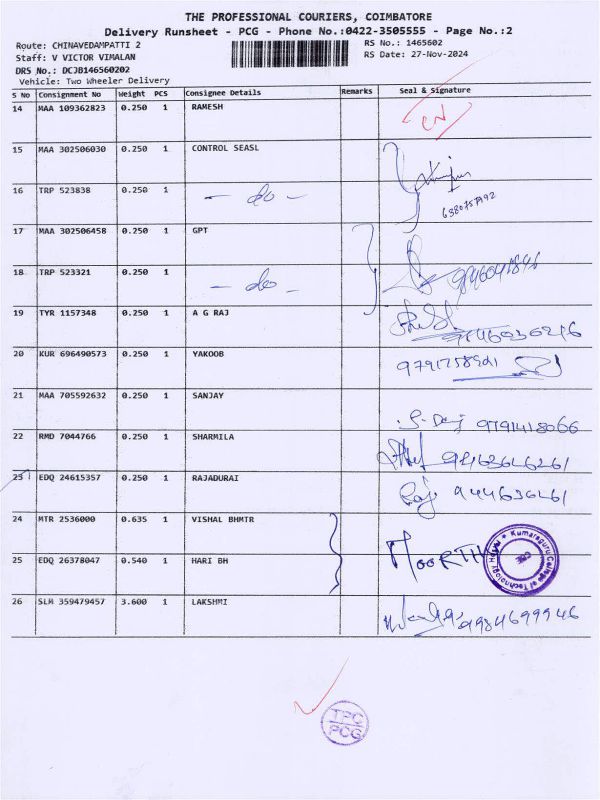 THE PROFESSIONAL COURIERS, COIMBATORE
Delivery Runsheet - PCG - Phone No.:0422-3505555 - Page No.:2
Route: CHINAVEDAMPATTI 2
RS No.: 1465602
Staff: V VICTOR VIMALAN
RS Date: 27-Nov-2024
DRS No.: DCJB146560202
Vehicle: Two Wheeler Delivery
S No Consignment No Weight PCS Consignee Details Remarks Seal & Signature
14 MAA 109362823 0.250 1 RAMESH
15 MAA 302506030 0.250 1 CONTROL SEASL
16 TRP 523838 0.250 1 - do -
17 MAA 302506458 0.250 1 GPT
18 TRP 523321 0.250 1 - do -
19 TYR 1157348 0.250 1 A G RAJ
20 KUR 696490573 0.250 1 YAKOOB
21 MAA 705592632 0.250 1 SANJAY
9791418066
22 RMD 7044766 0.250 1 SHARMILA
23 EDQ 24615357 0.250 1 RAJADURAI
Raj
24 MTR 2536000 0.635 1 VISHAL BHMTR
25 EDQ 26378047 0.540 1 HARI BH
MOORTHY
Kumaraguru College of Technology
26 SLM 359479457 3.600 1 LAKSHMI
9984699946
TPC
PCG